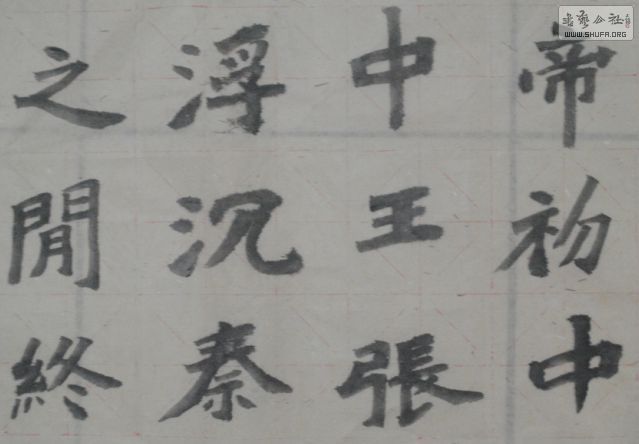 帝初中
中王張
浮沉秦
之閒終
書藝公社
WWW.SHUFA.ORG